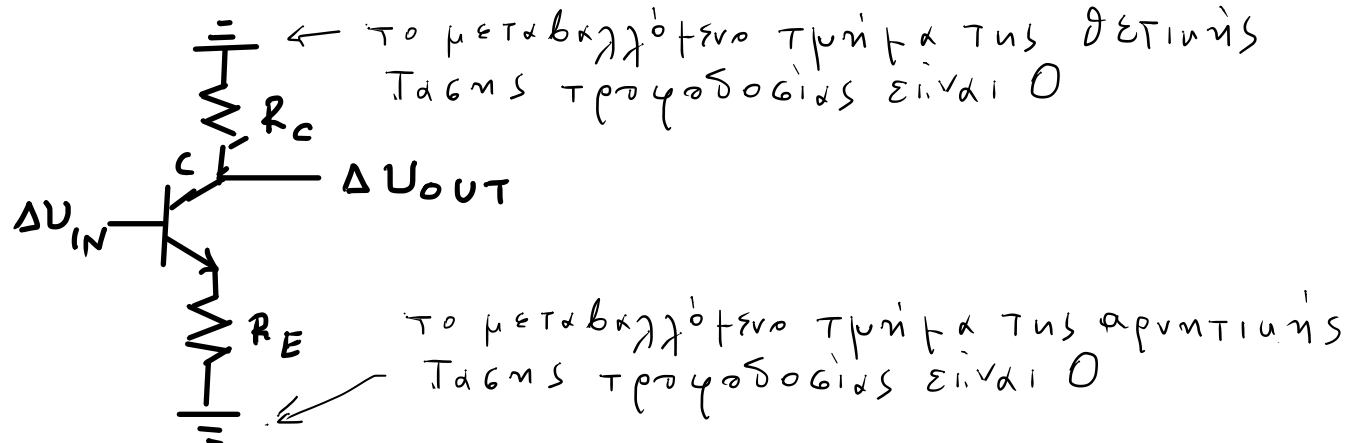 το μεταβαλλόμενο τμήμα της θετικής
τάσης τροφοδοσίας είναι 0
RC
C
ΔUOUT
ΔUIN
το μεταβαλλόμενο τμήμα της αρνητικής
τάσης τροφοδοσίας είναι 0
RE